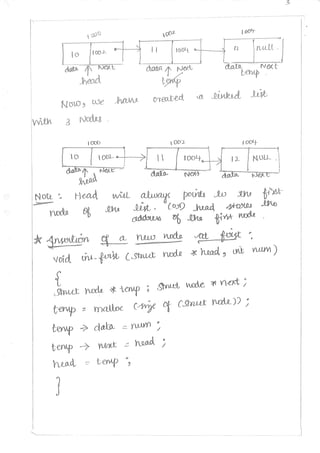 3
1000 1002 1004
10 1002 11 1004 null.
data Next data Next data Next
head temp temp
Now, we have created a linked list
with 3 nodes.
1000 1002 1004
10 1002 11 1004 12 NULL.
data Next data Next data Next
head
Note : Head will always points to the first
node of the list. (or) head stores the
address of the first node.
* Insertion of a new node at first :
void int-first (struct node * head, int num)
{
struct node * temp ; struct node * next ;
temp = malloc (size of (struct node)) ;
temp → data = num ;
temp → next = head ;
head = temp ;
}